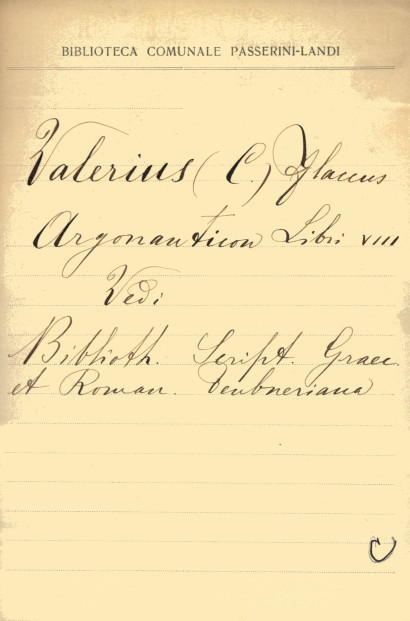 BIBLIOTECA COMUNALE PASSERINI-LANDI
Valerius (C.) Flacus
Argonauticon Libri VIII
Vedi
Biblioth. Script. Graec.
et Roman. Teubneriana
C